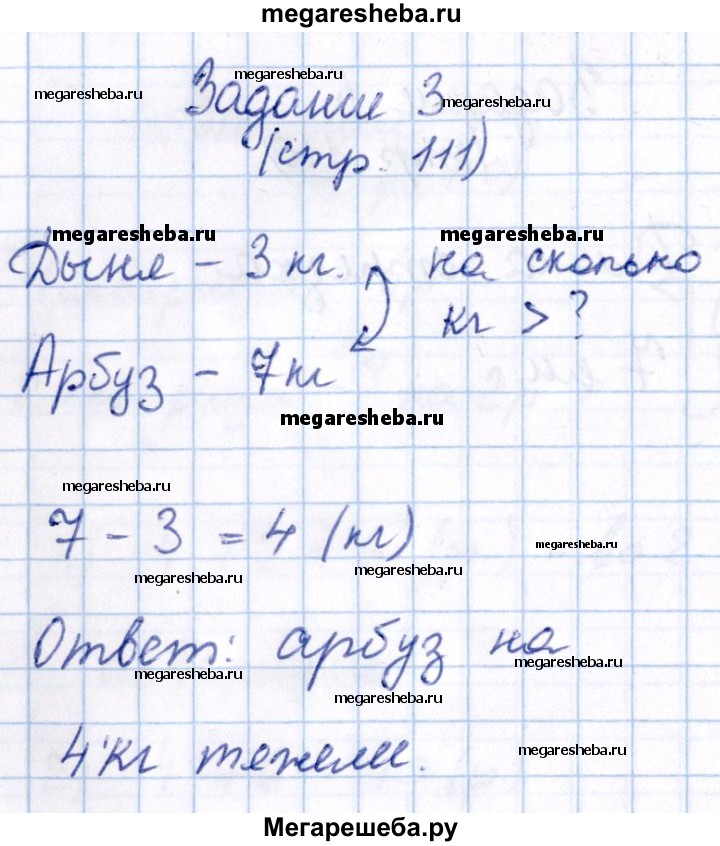 megaresheba.ru
megaresheba.ru
megaresheba.ru
Задание 3
megaresheba.ru
(стр. 111)
megaresheba.ru
megaresheba.ru
Дыня – 3 кг. на сколько
кг > ?
Арбуз – 7 кг
megaresheba.ru
megaresheba.ru
7 – 3 = 4 (кг)
megaresheba.ru
megaresheba.ru
megaresheba.ru
Ответ: арбуз на
megaresheba.ru
megaresheba.ru
megaresheba.ru
4 кг тяжелее.
megaresheba.ru
Мегарешеба.ру